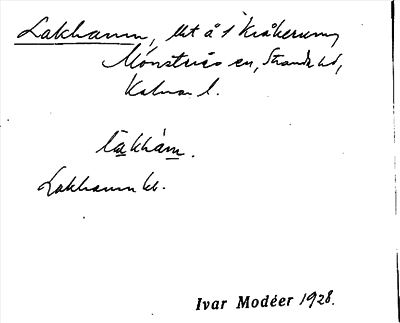 Lakhamn, utt å 1 Kråkerum,
Mönsterås sn, Stranda hd,
Kalmar l.
lakhàm.
Lakhamn kb.
Ivar Modéer 1928.